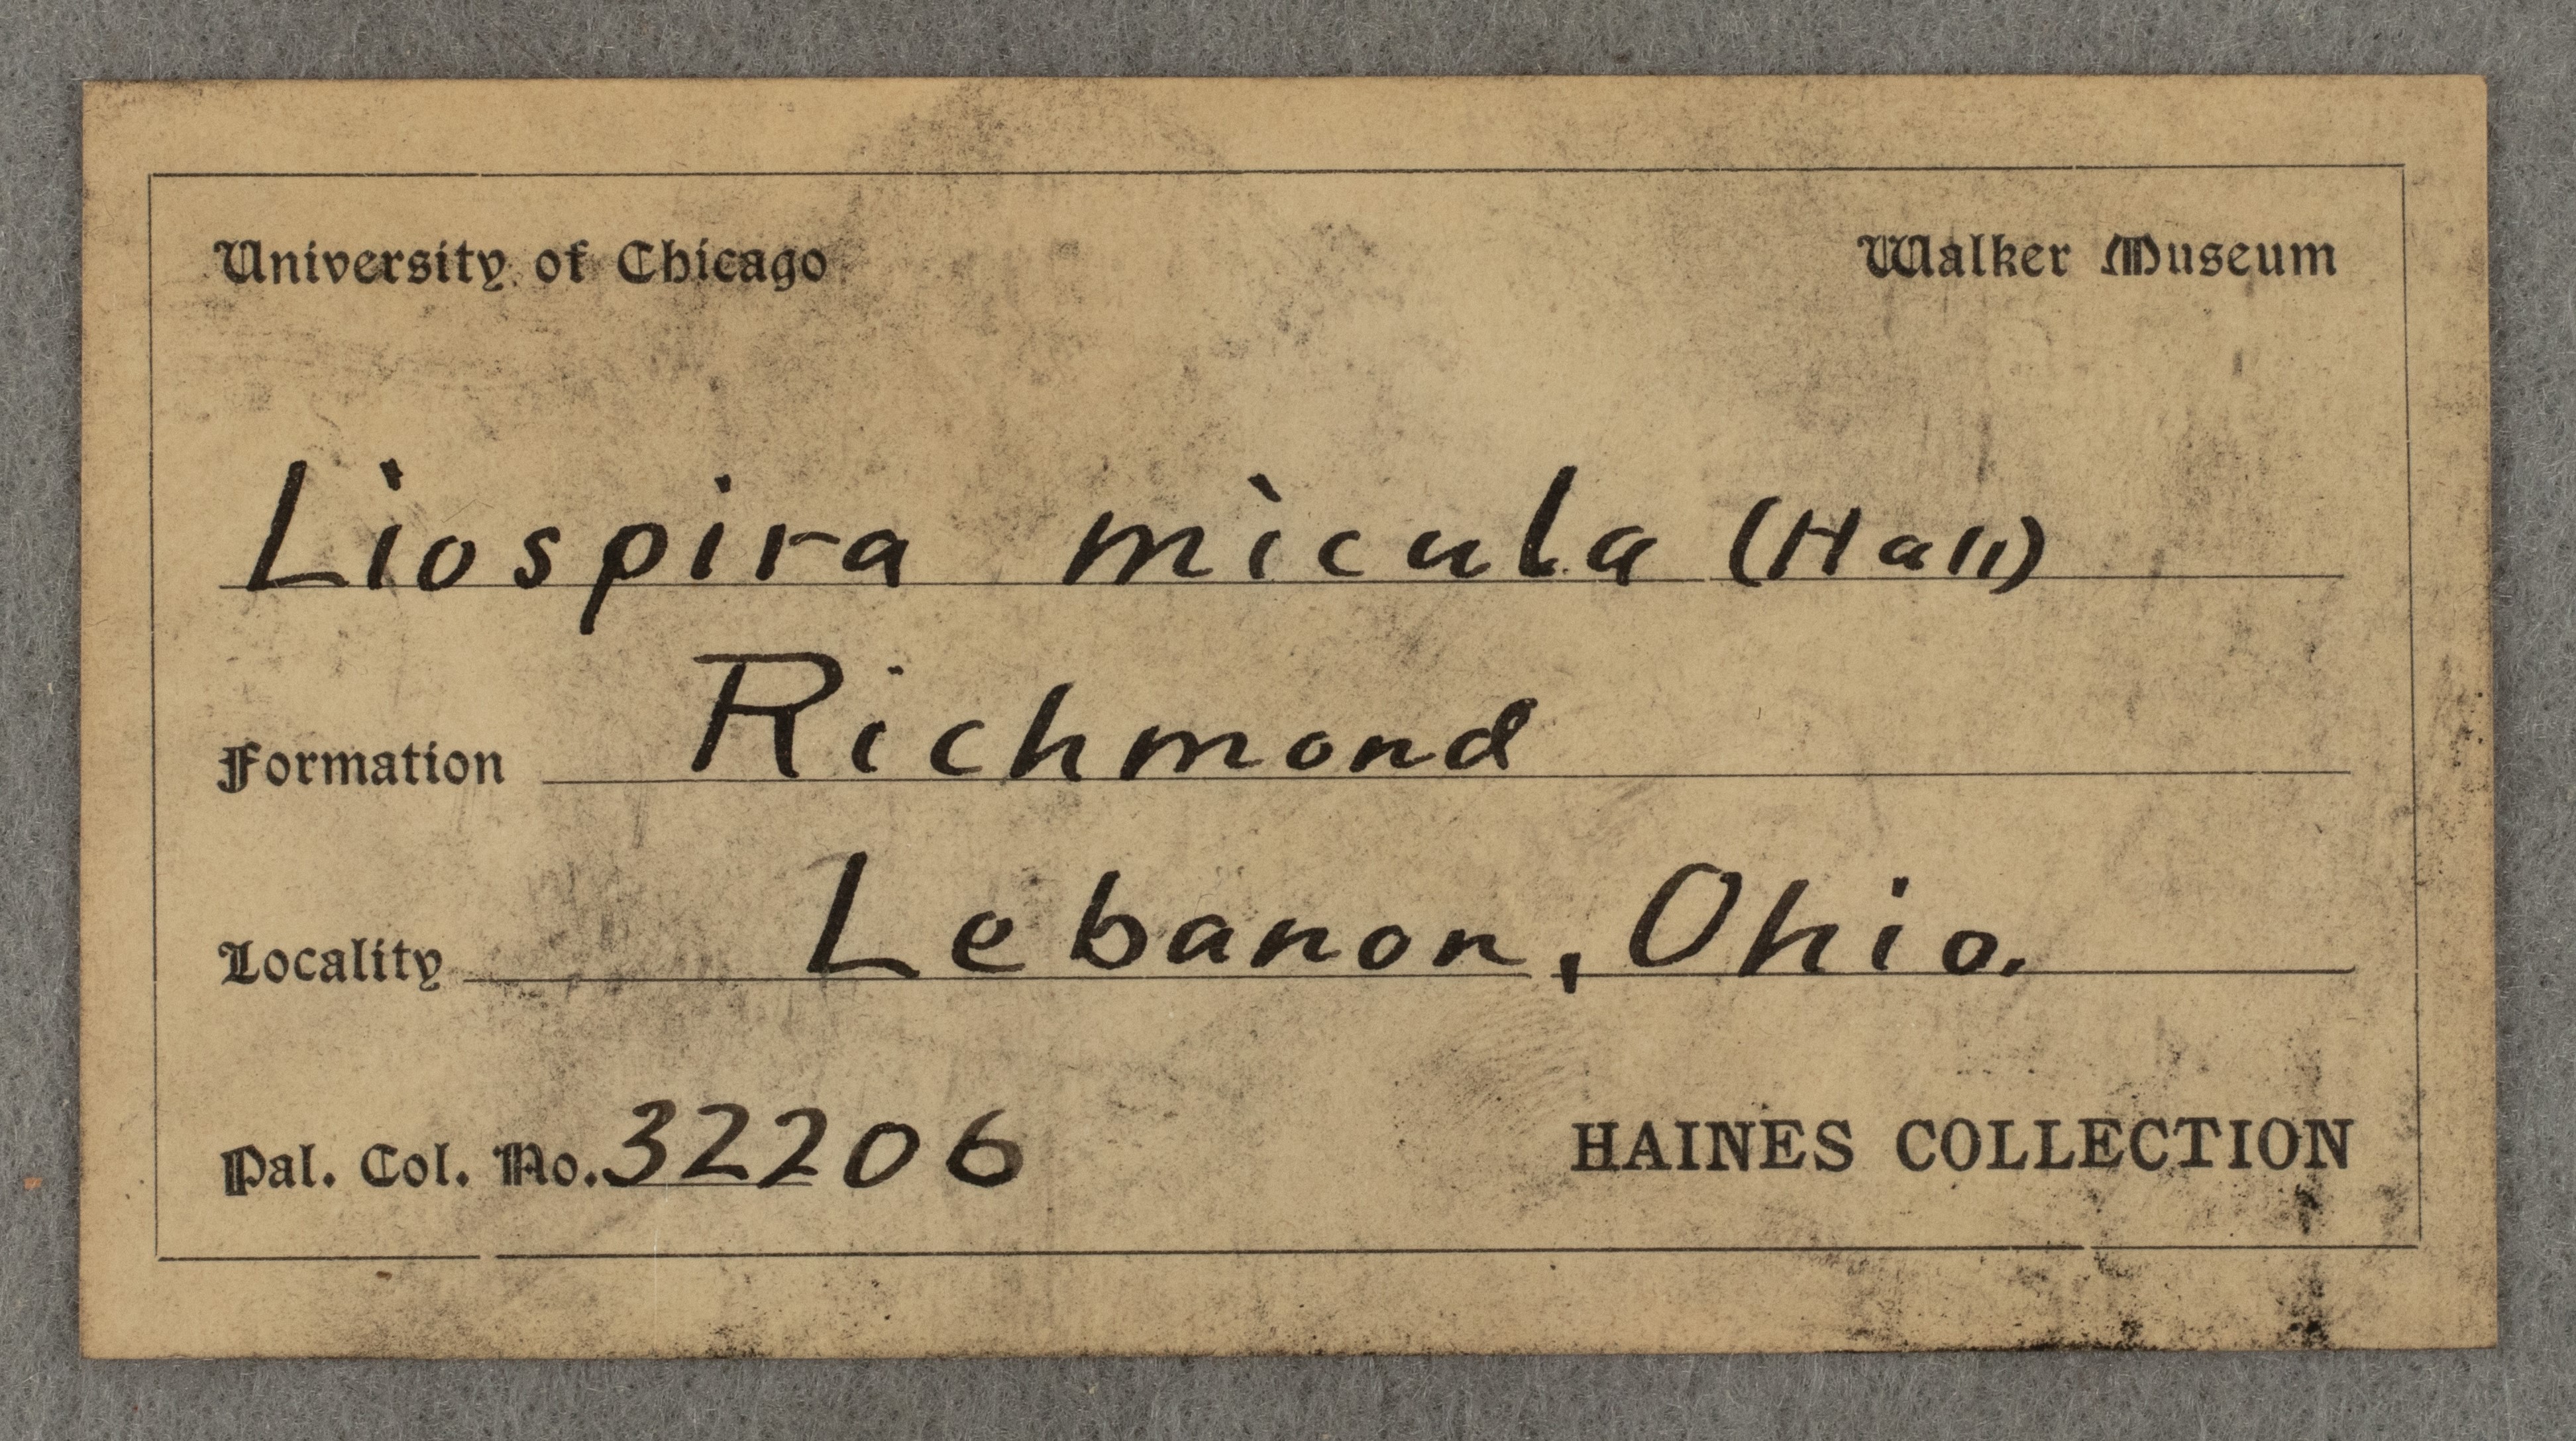 University of Chicago Walker Museum
Liospira micula (Hall)
Formation Richmond
Locality Lebanon, Ohio.
Pal. Col. No. 32206 HAINES COLLECTION